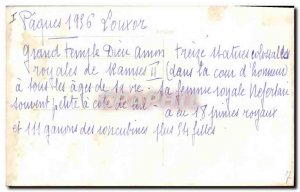 Pâques 1936 Louxor
Grand temple Dieu Amon Treize statues colossales
royales de Ramses II (dans la cour d'honneur
à tous les âges de la vie. Sa femme royale Nefertari
souvent petite à côté de lui a eu 18 princes royaux
et 111 garçons des concubines plus 54 filles